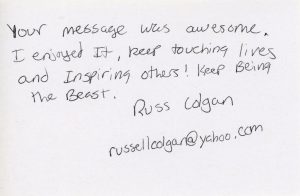 Your message was awesome.
I enjoyed It, keep touching lives
and Inspiring others! Keep Being
the Beast.
Russ Colgan
russellcolgan@yahoo.com